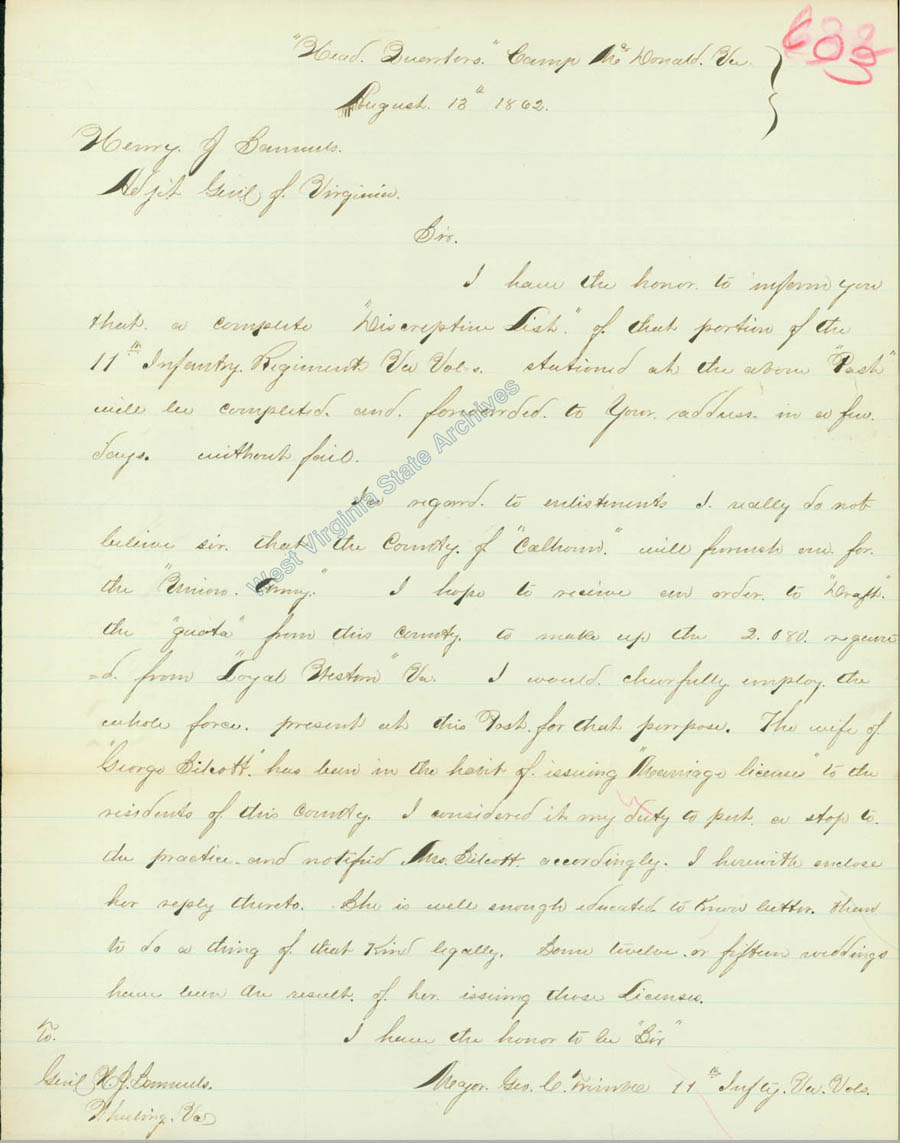 688
"Head. Quarters." Camp McDonald. Va.
August. 13th 1862.
Henry. J Samuels.
Adjt Genl of. Virginia.
Sir.
I have the honor. to inform you
that. a complete "Discreptive List." of. that portion of the
11th Infantry. Regiment Va Vols. stationed at the above "Post"
will be completed. and. forwarded. to Your. address. in a few.
days. without fail.
In regard. to enlistments I. really do not
believe sir. that the County. of "Calhoun." will furnish one for.
the "Union. Army." I hope to receive an order. to "Draft".
the "quota" from this county. to make up the 2.080. requir
=d. from "Loyal Western" Va. I would. cheerfully employ. the
whole force. present at this Post. for that porrpose. The wife of
"George Silcott". has been in the habit of. issuing "Marriage license" to the
residents of this County. I considered it my duty to put. a stop to.
the practice. and notified Mrs. Silcott accordingly. I herewith enclose
her reply thereto. She is well enough educated. to Know better. than
to do a thing of that Kind legally. Some twelve. or fifteen weddings
have been the result. of her issuing those Licenses.
I have the honor to be "Sir"
To.
Genl H. J. Samuels. Major. Geo. C. Trimble 11th Infty. Va. Vols.
Wheeling. Va
West Virginia State Archives